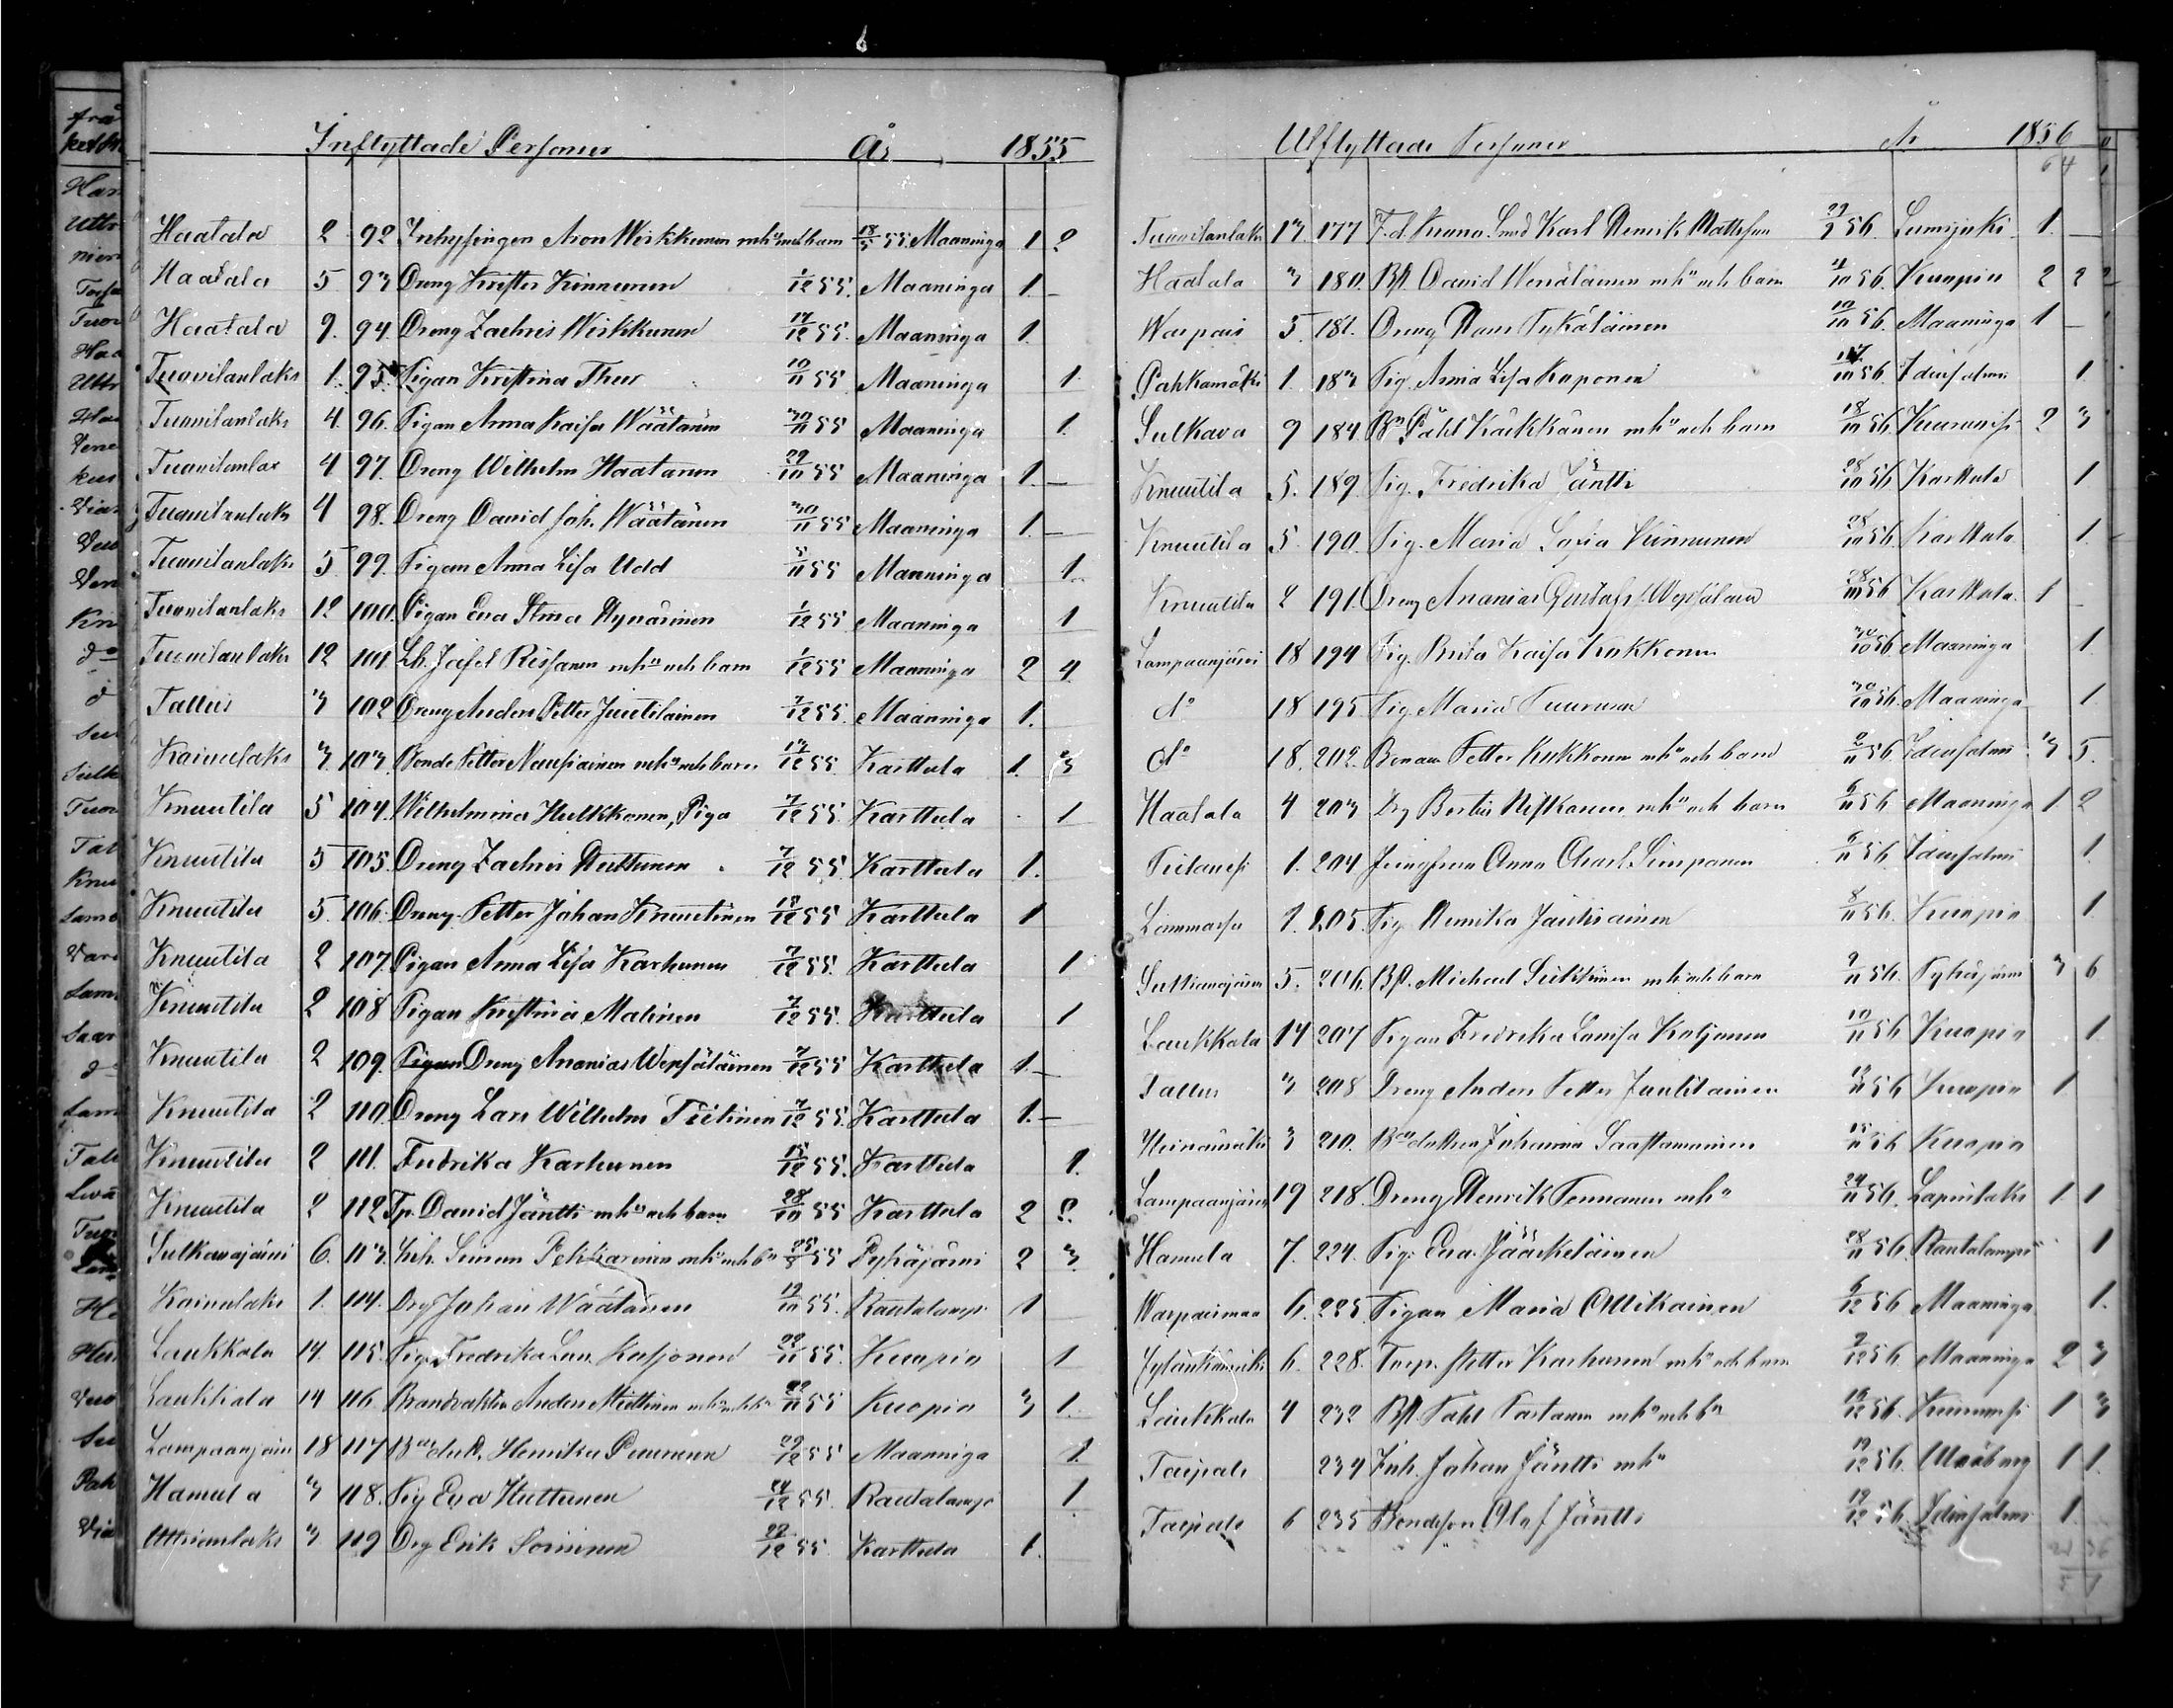 6
Inflyttade Personer År 1855
Haatala 2 92 Inhysingen Aron Wirkkunen mh: och barn 18/3 55 Maaninga 1 2
Haatala 5 93 Dreng Krister Kinnunen 1/12 55. Maaninga 1. –
Haatala 9. 94. Dreng Zachris Wirkkunen 17/12 55. Maaninga 1.
Tuovilanlaks 1. 95. Pigan Kristina Thur 10/11 55 Maaninga 1.
Tuovilanlaks 4. 96. Pigan Anna Kaisa Wäätänen 30/11 55 Maaninga 1.
Tuovilanlax 4 97. Dreng Wilhelm Haatanen 29/10 55 Maaninga 1. –
Tuovilanlaks 4 98. Dreng David Joh. Wäätänen 30/11 55 Maaninga 1. –
Tuovilanlaks 5 99. Pigan Anna Lisa Udd 5/11 55 Maaninga 1.
Tuovilanlaks 12 100. Pigan Eva Stina Hyvärinen 1/12 55. Maaninga 1
Tuovilanlaks 12 101 Lh. Josef Rissanen mh: och barn 1/12 55 Maaninga 2 4.
Tallus 3 102 Dreng Anders Petter Juutilainen 7/12 55. Maaninga 1.
Kainulaks 3. 103. Bonde Petter Nousiainen mh: och barn 17/12 55. Karttula 1. 3
Knuutila 5 104. Wilhelmina Hulkkonen, Piga 7/12 55. Karttula 1.
Knuutila 5 105. Dreng Zachris Huttunen 7/12 55. Karttula 1.
Knuutila 5. 106. Dreng Petter Johan Knuutinen 18/12 55 Karttula 1
Knuutila 2 107. Pigan Anna Lisa Karhunen 7/12 55. Karttula 1
Knuutila 2 108 Pigan Kristina Malinen 7/12 55. Karttula 1
Knuutila 2 109. Pigan Dreng Ananias Wepsäläinen 7/12 55 Karttula 1. –
Knuutila 2 110. Dreng Lars Wilhelm Tiitinen 7/12 55. Karttula 1. –
Knuutila 2 111. Fredrika Karhunen 15/12 55. Karttula 1.
Knuutila 2 112 Tp. David Jäntti mh: och barn 28/10 55 Karttula 2 2.
Sulkavajärvi 6. 113. Inh. Simon Pekkarinen mh: och bn 25/3 55 Pyhäjärvi 2 3.
Kainulaks 1. 114. Drg Johan Wäätänen 19/10 55. Rautalampi 1
Laukkala 14. 115. Pig. Fredrika Lov. Katjonen 22/11 55. Kuopio 1
Laukkala 14 116 Anders Miettinen 22/11 55 Kuopio 3 1.
Lampaanjärvi 18 117 Henrika 29/12 55 Maaninga 1.
Hamula 3 118. Pig Eva Huttunen 24/12 55. Rautalampi 1.
Uttrianlaks 3 119 Drg Erik Soininen 22/12 55 Karttula 1.
Utflyttade Personer År 1856
64
Tuovilanlaks 13. 177 Karl Henrik Mattsson 29/9 56. Lumijoki 1. –
Haatala 3 180. Bst. David Wenäläinen mh: och barn 4/10 56. Kuopio 2 2
Warpais 5. 181. Dreng Hans Tykäläinen 12/10 56. Maaninga 1 –
Pahkamäki 1. 183 Pig. Anna Lisa Kaponen 56. Idensalmi 1.
Sulkava 9 184. Bn Påhl Kärkkänen mh: och barn 18/10 56. 2 3
Knuutila 5. 189. Pig. Fredrika Jäntti 28/10 56 Karttula 1
Knuutila 5 190. Pig. Maria Sofia Kinnunen 28/10 56. Karttula 1.
Knuutila 2 191. Dreng Ananias Gustafs. Wepsäläin 28/10 56 Karttula 1 –
Lampaanjärvi 18 194 Pig. Brita Kaisa Kukkonen 30/10 56. Maaninga 1.
do 18 195. Pig. Maria Tuurunen 30/10 56. Maaninga 1.
do 18. 202. Bonden Petter Kukkonen mh: och barn 2/11 56. Idensalmi 3 5.
Haatala 4 203 Drg Bertil Niskanen mh: och barn 6/11 56 Maaninga 1. 2
1. 204 Jungfrun Anna Charl. Simpanen 6/11 56. Idensalmi 1.
1. 205. Pig Henrika Jauhiainen 8/11 56. Kuopio 1.
Sulkavajärvi 5. 206. Bst. Michael mh: och barn 9/11 56. Pyhäjärvi 3 6
Laukkala 14 207 Pigan Fredrika Lovisa Katjonen 10/11 56 Kuopio 1.
Tallus 3 208 Dreng Anders Petter Juutilainen 12/11 56 Kuopio 1.
Heinämäki 3 210. Johanna Saastamoinen 15/11 56 Kuopio
Lampaanjärvi 19 218. Dreng Henrik Tennanen mh: 24/11 56. Lapinlaks 1. 1
Hamula 7. 224. Pig. Eva Jääskeläinen 28/11 56. Rautalampi 1
Warpaismaa 6. 225. Pigan Maria Ollikainen 6/12 56 Maaninga 1.
6. 228. Torp. Petter Karhunen mh: och barn 9/12 56. Maaninga 2 3
Laukkala 4 232 Bst. Påhl Partanen mh: och bn 12/12 56. 1 3
Taipale 234 Inh. Johan Jäntti mh: 19/12 56. Uleåborg 1 1.
Taipale 6 235 Bondeson Olof Jäntti 19/12 56. Idensalmi 1.